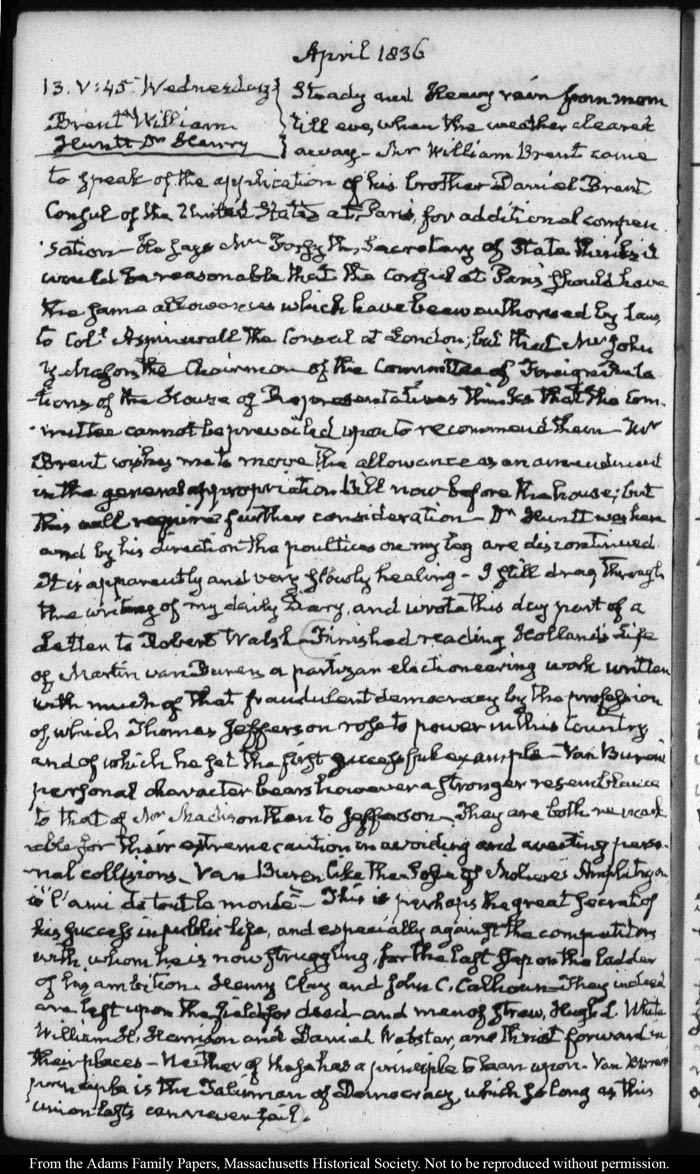 April 1836
13. V:45. Wednesday
Brent William
Huntt Dr Henry
Steady and Heavy rain from morn
till eve, when the weather cleared
away — Mr William Brent came
to speak of the application of his brother Daniel Brent
Consul of the United States at Paris, for additional compen
sation — He says Mr Forsyth, Secretary of State thinks it
would be reasonable that the Consul at Paris should have
the same allowances which have been authorised by Law
to Coll. Aspinwall the Consul at London; but that Mr John
Y. Mason, the Chairman of the Committee of Foreign Rela
tions of the House of Representatives thinks that the Com
mittee cannot be prevailed upon to recommend them — Mr
Brent wishes me to move the allowance as an amendment
in the general appropriation Bill now before the house; but
this will require further consideration — Dr Huntt was here
and by his direction the poultices on my leg are discontinued.
It is apparently and very slowly healing — I still drag through
the writing of my daily Diary, and wrote this day part of a
Letter to Robert Walsh — Finished reading Holland's Life
of Martin van Buren, a partizan electioneering work written
with much of that fraudulent democracy by the profession
of which Thomas Jefferson rose to power in this Country
and of which he set the first successful example — Van Buren's
personal character bears however a stronger resemblance
to that of Mr Madison than to Jefferson — They are both remark
able for their extreme caution in avoiding and averting perso
nal collisions — Van Buren like the Sosia of Moliere's Amphitryon
is "l'ami de tout le monde" — This is perhaps the great secret of
his success in public life, and especially against the competitors
with whom he is now struggling, for the last step on the ladder
of his ambition. Henry Clay and John C. Calhoun — They indeed
are left upon the field for dead — and men of straw, Hugh L. White
William H. Harrison and Daniel Webster, are thrust forward in
their places — Neither of these has a principle to lean upon — Van Buren's
principle is the Talisman of Democracy, which so long as this
union lasts can never fail.
From the Adams Family Papers, Massachusetts Historical Society. Not to be reproduced without permission.